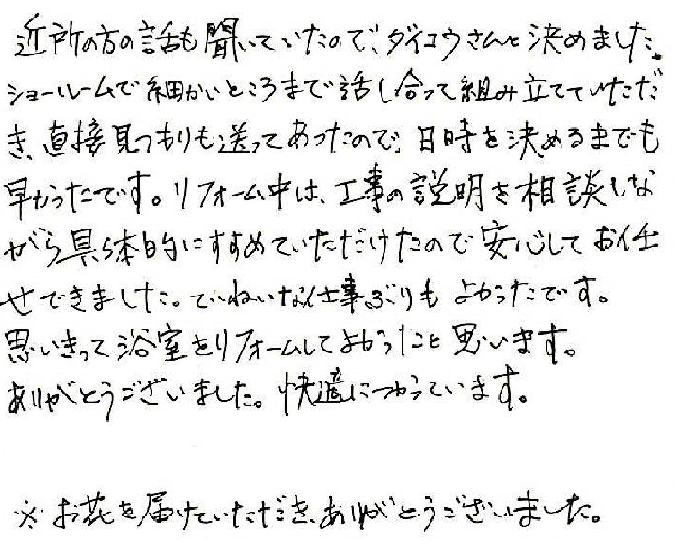 近所の方の話も聞いていたので、ダイコウさんと決めました。
ショールームで細かいところまで話し合って組み立てていただ
き、直接見つもりも送ってあったので、日時を決めるまでも
早かったです。リフォーム中は、工事の説明を相談しな
がら具体的にすすめていただけたので安心してお任
せできました。ていねいな仕事ぶりもよかったです。
思いきって浴室をリフォームしてよかったと思います。
ありがとうございました。快適につかっています。
※お花を届けていただき、ありがとうございました。